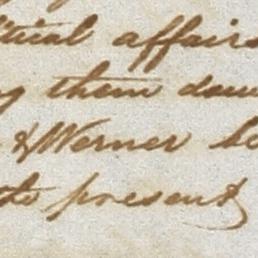 itical affairs
them down
& Werner
to present